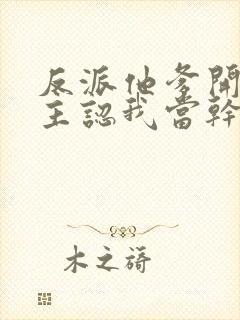 反派他爹開
主認我當幹
木之猗